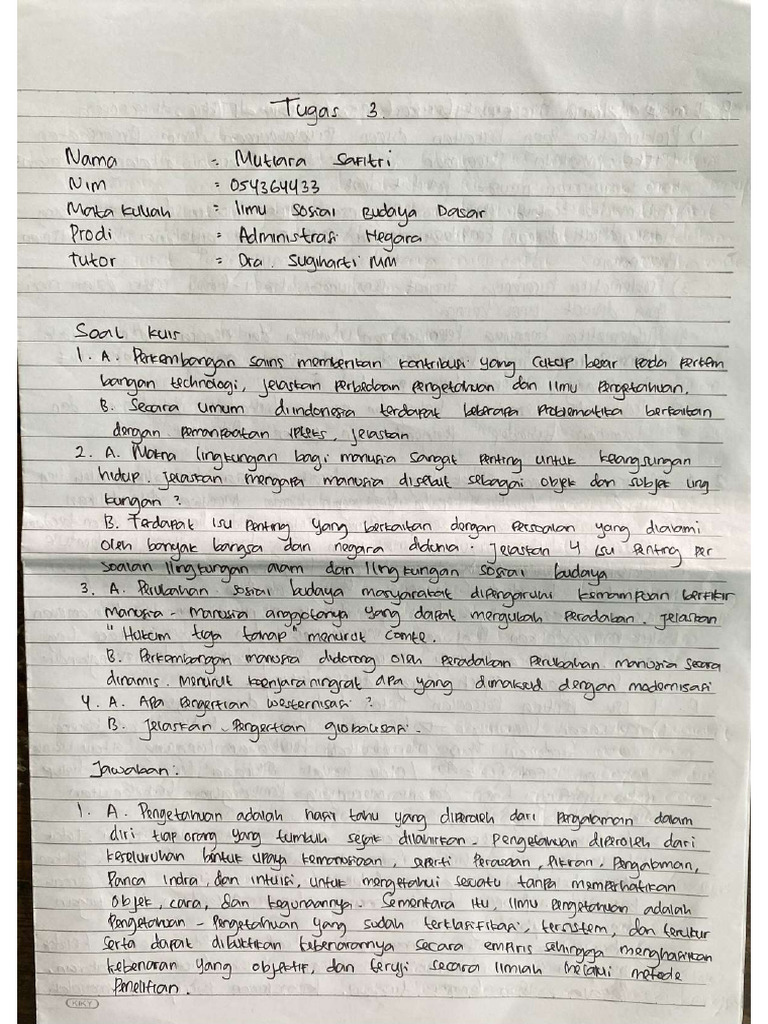 Tugas 3.
Nama : Mutiara Safitri
Nim : 054364433
Mata kuliah : Ilmu Sosial Budaya Dasar
Prodi : Administrasi Negara
tutor : Dra. Sugiharti MM
Soal kuis
1. A. Perkembangan sains memberikan kontribusi yang cukup besar pada perkem
bangan technologi, jelaskan perbedaan pengetahuan dan Ilmu pengetahuan.
B. Secara umum diindonesia terdapat beberapa problematika berkaitan
dengan pemanfaatan ipteks, jelaskan
2. A. Makna lingkungan bagi manusia sangat penting untuk keangsungan
hidup. jelaskan mengapa manusia disebut sebagai objek dan subjek ling
kungan ?
B. Terdapat isu penting yang berkaitan dengan persoalan yang dialami
oleh banyak bangsa dan negara didunia. jelaskan 4 isu penting per
soalan lingkungan alam dan lingkungan sosial budaya
3. A. Perubahan sosial budaya masyarakat dipengaruhi kemampuan berfikir
manusia - manusia anggotanya yang dapat mengubah peradaban. jelaskan
"Hukum tiga tahap" menurut comte.
B. Perkembangan manusia didorong oleh peradaban perubahan manusia secara
dinamis. Menurut koenjaraningrat apa yang dimaksud dengan modernisasi
4. A. Apa pengertian westernisasi ?
B. Jelaskan pengertian globalisasi.
Jawaban :
1. A. Pengetahuan adalah hasil tahu yang diperoleh dari pengalaman dalam
diri tiap orang yang tumbuh sejak dilahirkan. pengetahuan diperoleh dari
keseluruhan bentuk upaya kemanusiaan, seperti perasaan, pikiran, pengalaman,
panca indra, dan intuisi, untuk mengetahui sesuatu tanpa memperhatikan
objek, cara, dan kegunaannya. Sementara itu, ilmu pengetahuan adalah
pengetahuan - pengetahuan yang sudah terklasifikasi, tersistem, dan terukur
serta dapat dibuktikan kebenarannya secara empiris sehingga menghasilkan
kebenaran yang objektif, dan teruji secara ilmiah melalui metode
penelitian.
KIKY